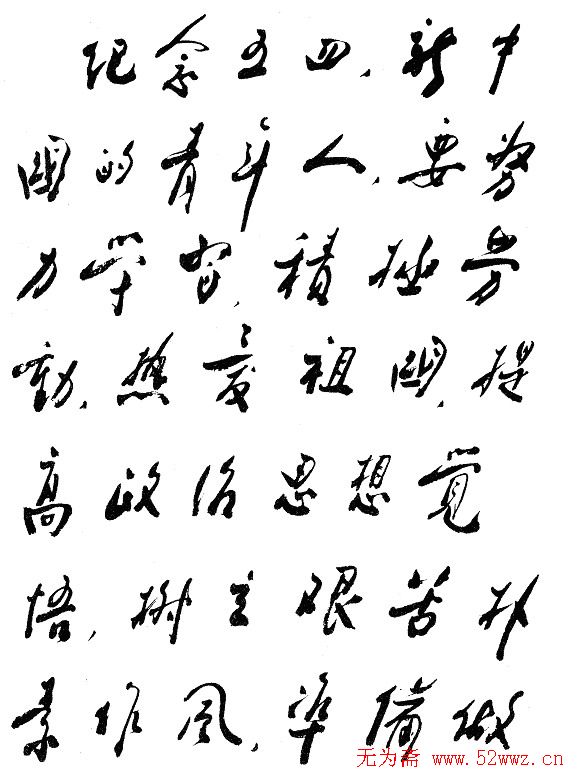 纪念五四，新中
國的青年人，要努
力学習，積極劳
動，热爱祖國，提
高政治思想覚
悟，樹立艰苦朴
素作风，準備做
无为斋 www.52wwz.cn